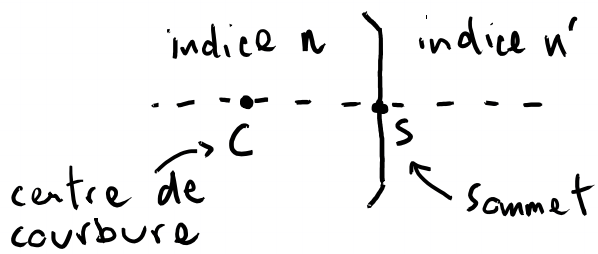 indice n
indice n'
C
S
centre de
courbure
sommet